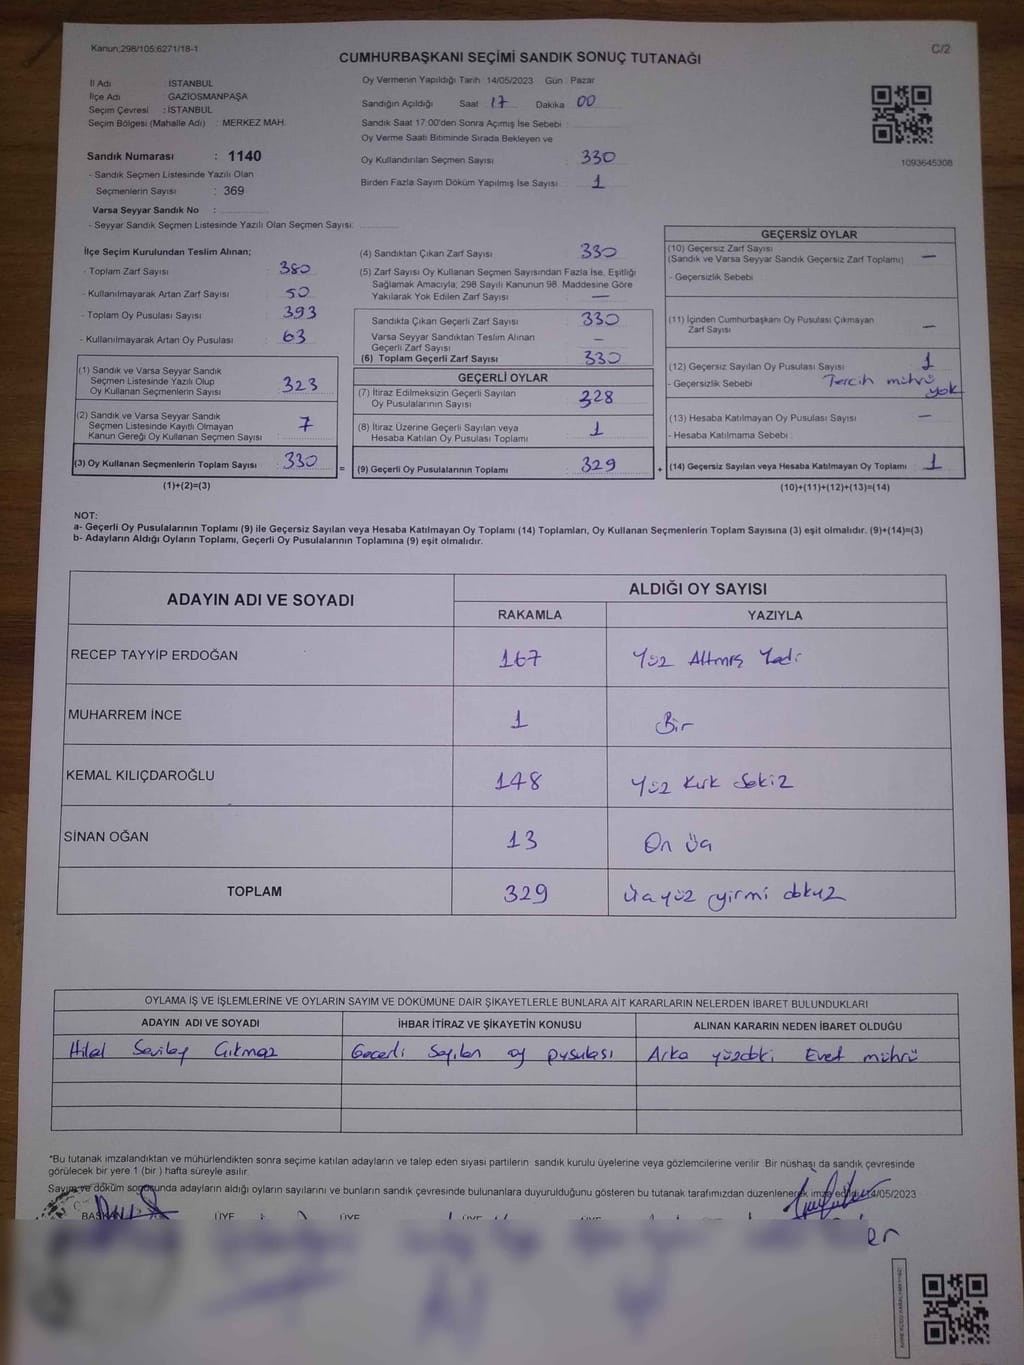 Kanun;298/105;6271/18-1
C/2
CUMHURBAŞKANI SEÇİMİ SANDIK SONUÇ TUTANAĞI
İl Adı : İSTANBUL
İlçe Adı : GAZİOSMANPAŞA
Seçim Çevresi : İSTANBUL
Seçim Bölgesi (Mahalle Adı) : MERKEZ MAH.
Sandık Numarası : 1140
- Sandık Seçmen Listesinde Yazılı Olan
Seçmenlerin Sayısı : 369
Varsa Seyyar Sandık No :
- Seyyar Sandık Seçmen Listesinde Yazılı Olan Seçmen Sayısı:
Oy Vermenin Yapıldığı Tarih :14/05/2023 Gün : Pazar
Sandığın Açıldığı Saat 17 Dakika 00
Sandık Saat 17:00'den Sonra Açımış İse Sebebi :
Oy Verme Saati Bitiminde Sırada Bekleyen ve
Oy Kullandırılan Seçmen Sayısı 330
Birden Fazla Sayım Döküm Yapılmış İse Sayısı 1
1093645308
İlçe Seçim Kurulundan Teslim Alınan;
- Toplam Zarf Sayısı 380
- Kullanılmayarak Artan Zarf Sayısı 50
- Toplam Oy Pusulası Sayısı 393
- Kullanılmayarak Artan Oy Pusulası 63
(1) Sandık ve Varsa Seyyar Sandık
Seçmen Listesinde Yazılı Olup
Oy Kullanan Seçmenlerin Sayısı 323
(2) Sandık ve Varsa Seyyar Sandık
Seçmen Listesinde Kayıtlı Olmayan
Kanun Gereği Oy Kullanan Seçmen Sayısı 7
(3) Oy Kullanan Seçmenlerin Toplam Sayısı 330
(1)+(2)=(3)
(4) Sandıktan Çıkan Zarf Sayısı 330
(5) Zarf Sayısı Oy Kullanan Seçmen Sayısından Fazla İse, Eşitliği
Sağlamak Amacıyla; 298 Sayılı Kanunun 98. Maddesine Göre
Yakılarak Yok Edilen Zarf Sayısı —
Sandıkta Çıkan Geçerli Zarf Sayısı 330
Varsa Seyyar Sandıktan Teslim Alınan
Geçerli Zarf Sayısı —
(6) Toplam Geçerli Zarf Sayısı 330
GEÇERLİ OYLAR
(7) İtiraz Edilmeksizin Geçerli Sayılan
Oy Pusulalarının Sayısı 328
(8) İtiraz Üzerine Geçerli Sayılan veya
Hesaba Katılan Oy Pusulası Toplamı 1
= (9) Geçerli Oy Pusulalarının Toplamı 329
GEÇERSİZ OYLAR
(10) Geçersiz Zarf Sayısı
(Sandık ve Varsa Seyyar Sandık Geçersiz Zarf Toplamı) —
- Geçersizlik Sebebi
(11) İçinden Cumhurbaşkanı Oy Pusulası Çıkmayan
Zarf Sayısı —
(12) Geçersiz Sayılan Oy Pusulası Sayısı 1
- Geçersizlik Sebebi Tercih mührü
yok
(13) Hesaba Katılmayan Oy Pusulası Sayısı —
- Hesaba Katılmama Sebebi
+ (14) Geçersiz Sayılan veya Hesaba Katılmayan Oy Toplamı 1
(10)+(11)+(12)+(13)=(14)
NOT:
a- Geçerli Oy Pusulalarının Toplamı (9) ile Geçersiz Sayılan veya Hesaba Katılmayan Oy Toplamı (14) Toplamları, Oy Kullanan Seçmenlerin Toplam Sayısına (3) eşit olmalıdır. (9)+(14)=(3)
b- Adayların Aldığı Oyların Toplamı, Geçerli Oy Pusulalarının Toplamına (9) eşit olmalıdır.
ADAYIN ADI VE SOYADI ALDIĞI OY SAYISI
RAKAMLA YAZIYLA
RECEP TAYYİP ERDOĞAN 167 Yüz Altmış Yedi
MUHARREM İNCE 1 Bir
KEMAL KILIÇDAROĞLU 148 Yüz Kırk Sekiz
SİNAN OĞAN 13 On üç
TOPLAM 329 üçyüz yirmi dokuz
OYLAMA İŞ VE İŞLEMLERİNE VE OYLARIN SAYIM VE DÖKÜMÜNE DAİR ŞİKAYETLERLE BUNLARA AİT KARARLARIN NELERDEN İBARET BULUNDUKLARI
ADAYIN ADI VE SOYADI İHBAR İTİRAZ VE ŞİKAYETİN KONUSU ALINAN KARARIN NEDEN İBARET OLDUĞU
Hilal Sevilay Çıkmaz Geçerli Sayılan oy pusulası Arka yüzdeki Evet mührü
*Bu tutanak imzalandıktan ve mühürlendikten sonra seçime katılan adayların ve talep eden siyasi partilerin sandık kurulu üyelerine veya gözlemcilerine verilir. Bir nüshası da sandık çevresinde
görülecek bir yere 1 (bir ) hafta süreyle asılır.
Sayım ve döküm sonunda adayların aldığı oyların sayılarını ve bunların sandık çevresinde bulunanlara duyurulduğunu gösteren bu tutanak tarafımızdan düzenlenerek imza edildi. 14/05/2023
BAŞKAN ÜYE ÜYE ÜYE ÜYE
er